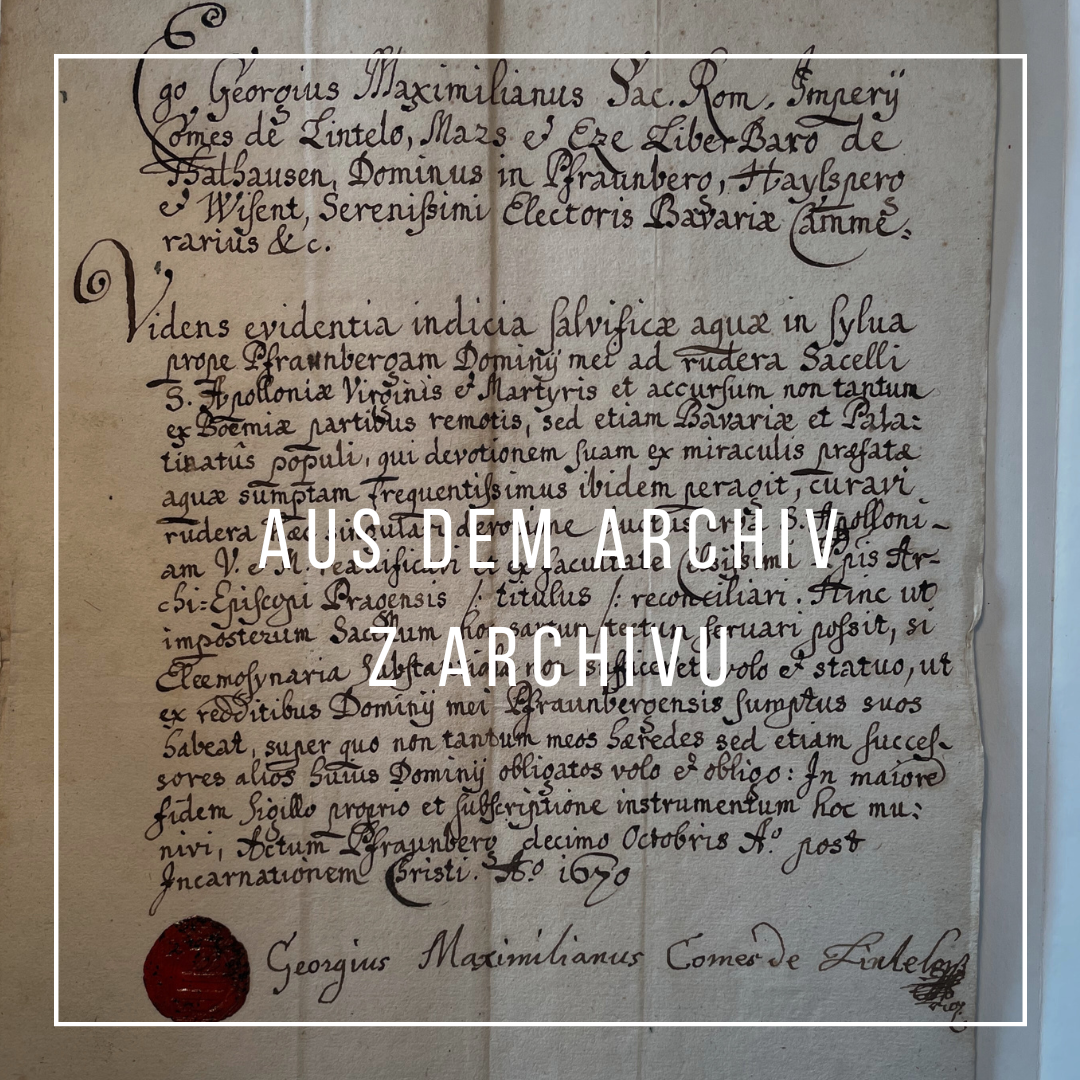 Ego Georgius Maximilianus Sac. Rom. Imperÿ
Comes de Lintelo, Mars et Eze Liber Baro de
Thalhausen, Dominus in Pfraunberg, Haylsperg
et Wisent, Serenißimi Electoris Bavariæ Camme:
rarius &c.
Videns evidentia indicia salvificæ aquæ in sylua
prope Pfraunbergam Dominÿ mei ad rudera Sacelli
S. Apolloniæ Virginis et Martyris et accursum non tantum
ex Boemiæ partibus remotis, sed etiam Bavariæ et Pala:
tinatus populi, qui devotionem suam ex miraculis præfatæ
aquæ sumptam frequentissimus ibidem peragit, curavi
rudera hæc singulari devotione S. Apolloni-
AUS DEM ARCHIV
am V. et M. reædificari et ex facultate Celsissimi Ar-
chi-Episcopi Pragensis /: titulus /: reconciliari. Hinc ut
imposterum hoc sartum tectum servari possit, si
Z ARCHIVU
Eleemosynaria substantia non sufficeret, volo et statuo, ut
ex redditibus Dominÿ mei Pfraunbergensis sumptus suos
habeat, super quo non tantum meos hæredes sed etiam succes-
sores alios huius Dominÿ obligatos volo et obligo: In maiore
fidem sigillo proprio et subscriptione instrumentum hoc mu:
nivi, Actum Pfraunberg decimo Octobris Aº post
Incarnationem Christi. Aº 1670
Georgius Maximilianus Comes de Lintelo